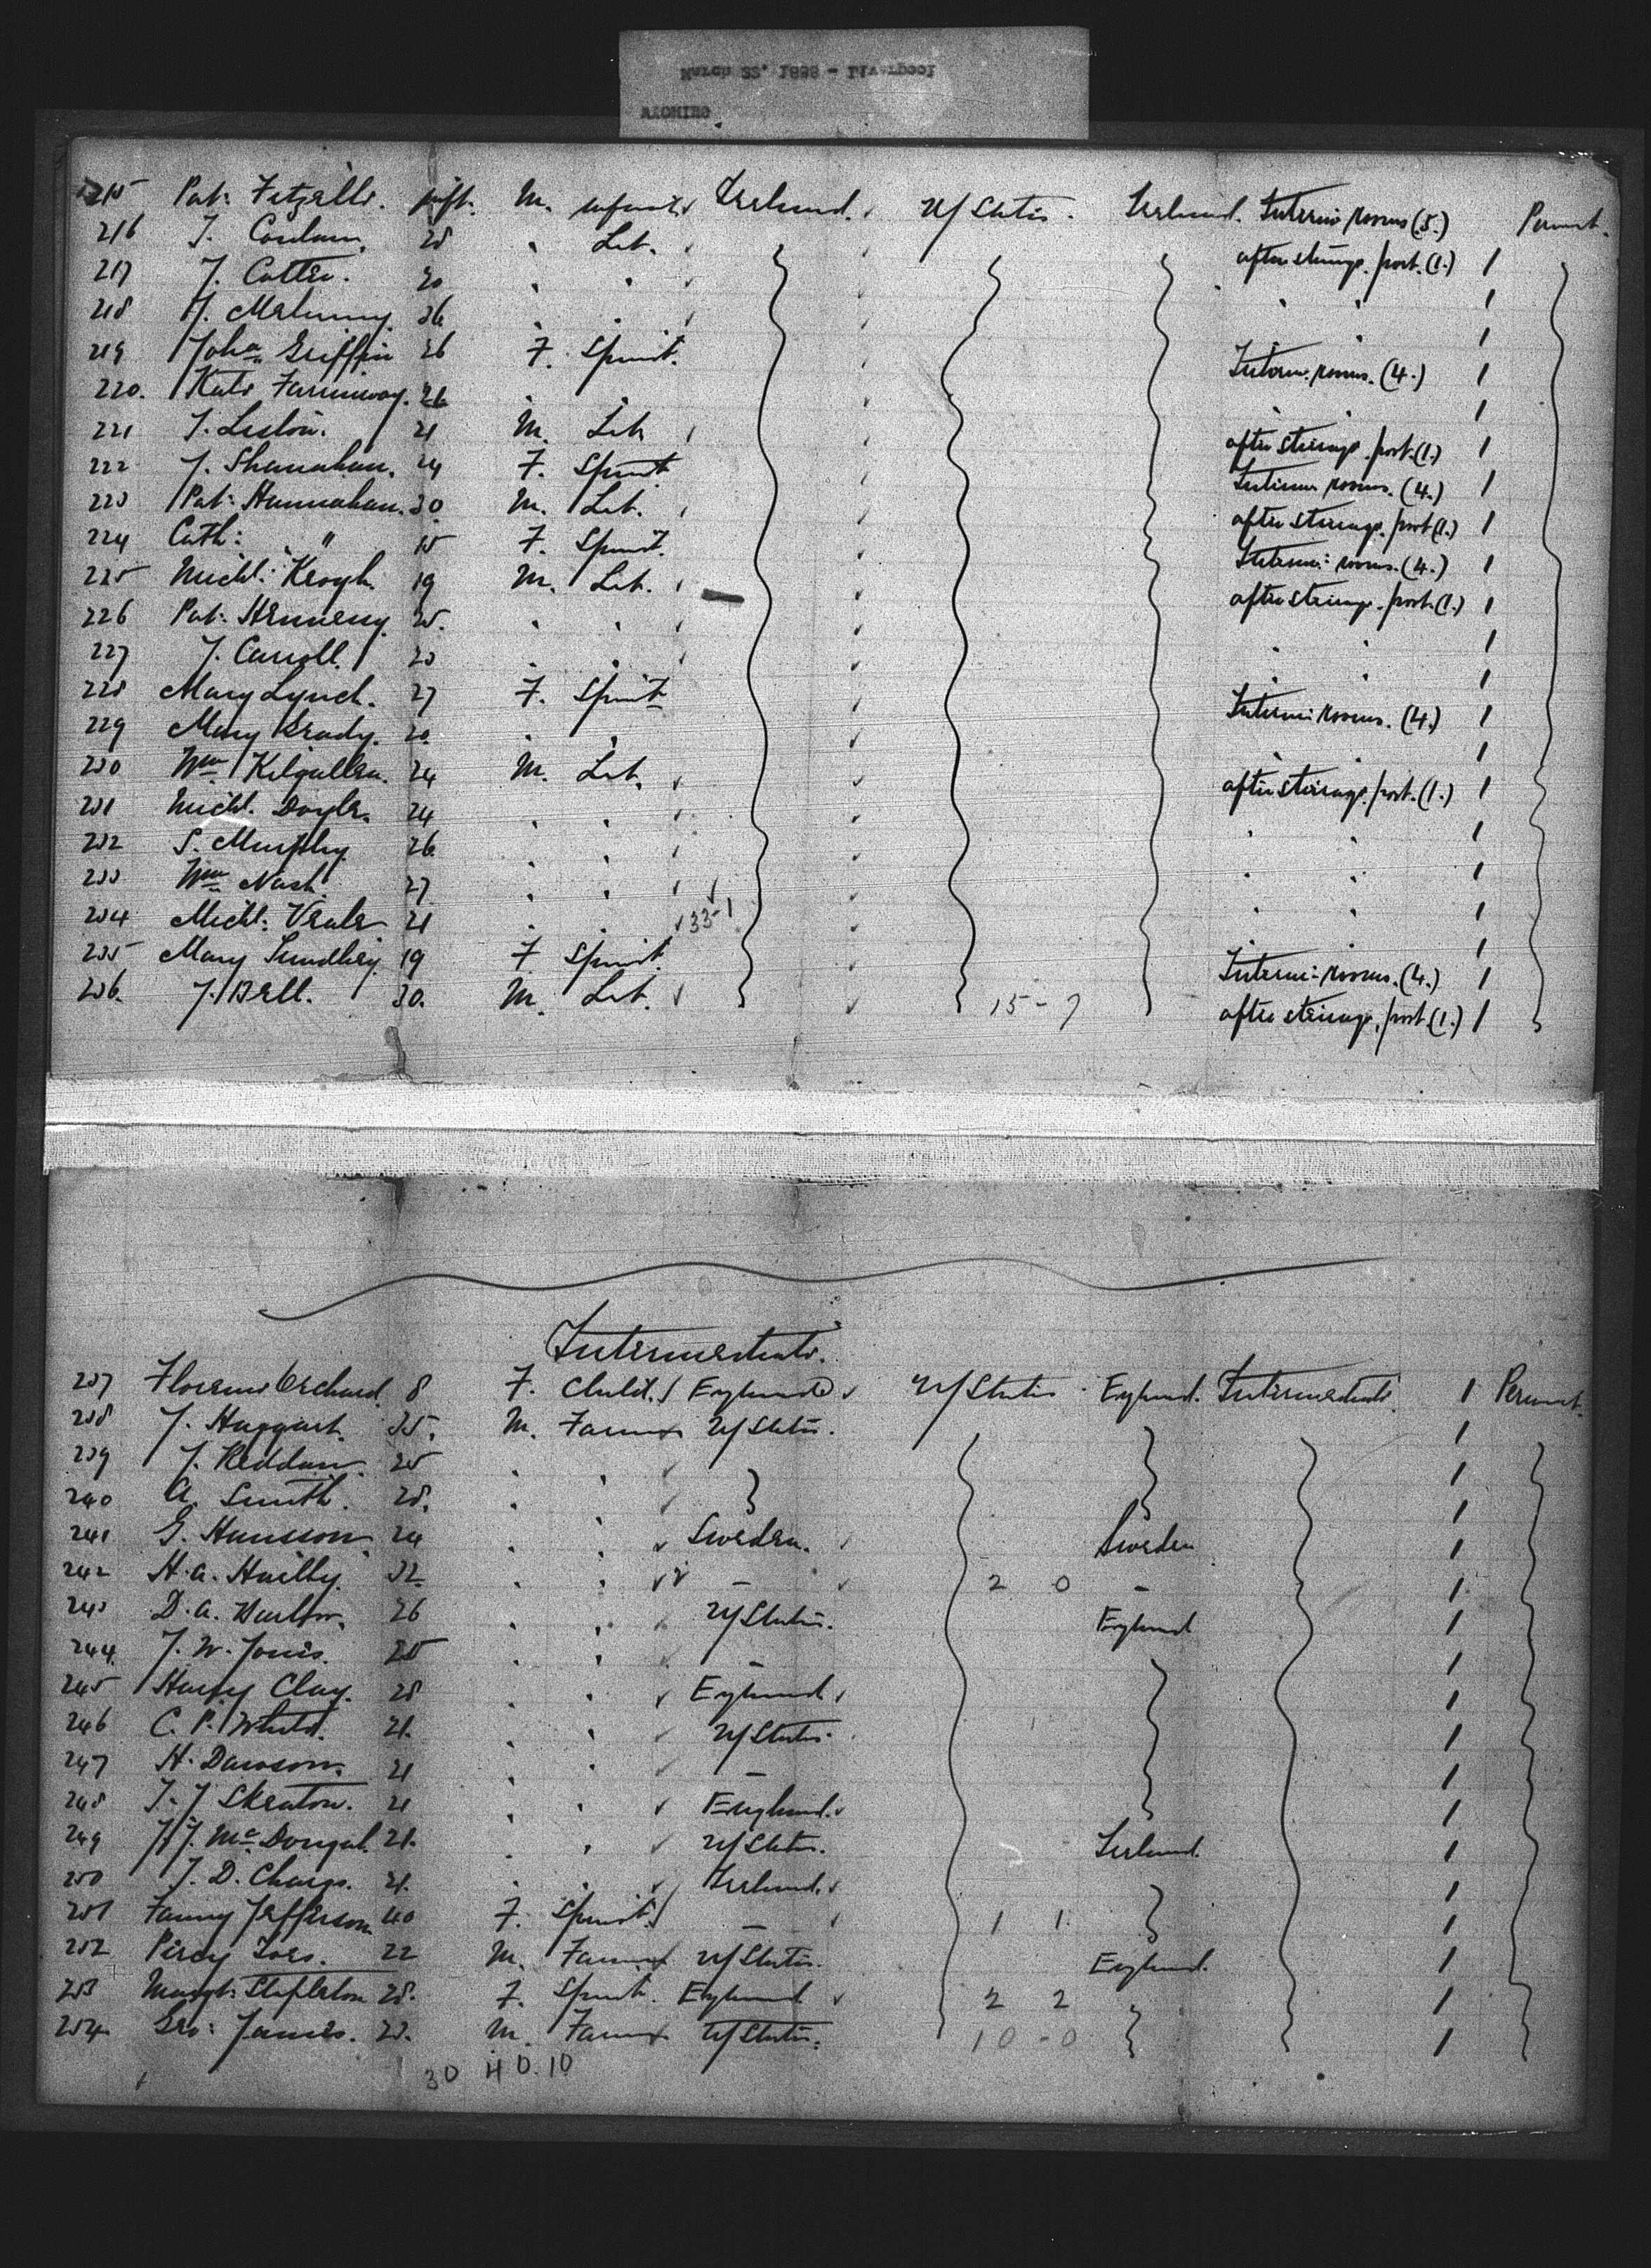 March 22, 1888 - Liverpool
215 Pat: Fitzell. inft. M. infant Ireland. U/States. Ireland. Intermi rooms (5.) Permt.
216 J. Conlam. 28 " Lab. after steerage. port. (1.) 1
217 J. Cotter. 20 " " " " 1
218 J. Maloney. 26 " " " " 1
219 Joha Griffin 26 F. Spinst. Interm. rooms. (4.) 1
220. Kate 26 " " " " 1
221 J. Liston. 21 M. Lab after steerage. port. (1.) 1
222 J. Shanahan. 24 F. Spinst Interm rooms. (4.) 1
223 Pat: Hannahan. 30. M. Lab. after steerage. port (1.) 1
224 Cath: " 15 F. Spinst. Intermi: rooms. (4.) 1
225 Michl: Keogh. 19 M. Lab. after steerage. port. (1.) 1
226 Pat: Hennessy. 25. " " " " 1
227 J. Carroll. 20 " " " " 1
228 Mary Lynch. 27 F. Spinst Intermi rooms. (4.) 1
229 Mary Grady. 20. " " 1
230 Wm Kilgallen. 24 M. Lab. after steerage. port. (1.) 1
231 Michl. Doyle. 24 " " " " 1
232 S. Murphy 26. " " " " 1
233 Wm Nash. 27 " " " " 1
234 Michl: Veale 21 " " 33-1 " " 1
235 Mary 19 F Spinst. Intermi-rooms. (4.) 1
236. J. Bell. 30. M. Lab. 15-7 after steerage. port. (1.) 1
Intermediate.
237 Florence Orchard 8 F. Child. England U/States England. Intermediate. 1 Permt.
238 J. Haggart. 35. M. Farmer U/States. 1
239 J. Reddan. 25 " " 1
240 A. Smith. 28. " " 1
241 G. Hansson. 24 " " Sweden. Sweden 1
242 H. A. 32. " " - 2 0 - 1
243 D. A. Barlow. 26 " " U/States. England 1
244. J. W. Jones. 25 " " - 1
245 Harry Clay. 28 " " England 1
246 C. P. White. 21. " " U/States. 1
247 H. Dawson. 21 " " - 1
248 J. J Skeaton. 21 " " England. 1
249 J. J. McDougal. 21. " " U/States. Ireland. 1
250 J. D. 21. " " Ireland. 1
251 Fanny Jefferson 40 F. Spinst. - 1 1. 1
252 Percy 22 M. Farmer U/States. England. 1
253 Margt: Stapleton 28. F. Spinst. England 2 2 1
254. Geo: James. 23. M. Farmer U/States. 10-0 1
30 40.10